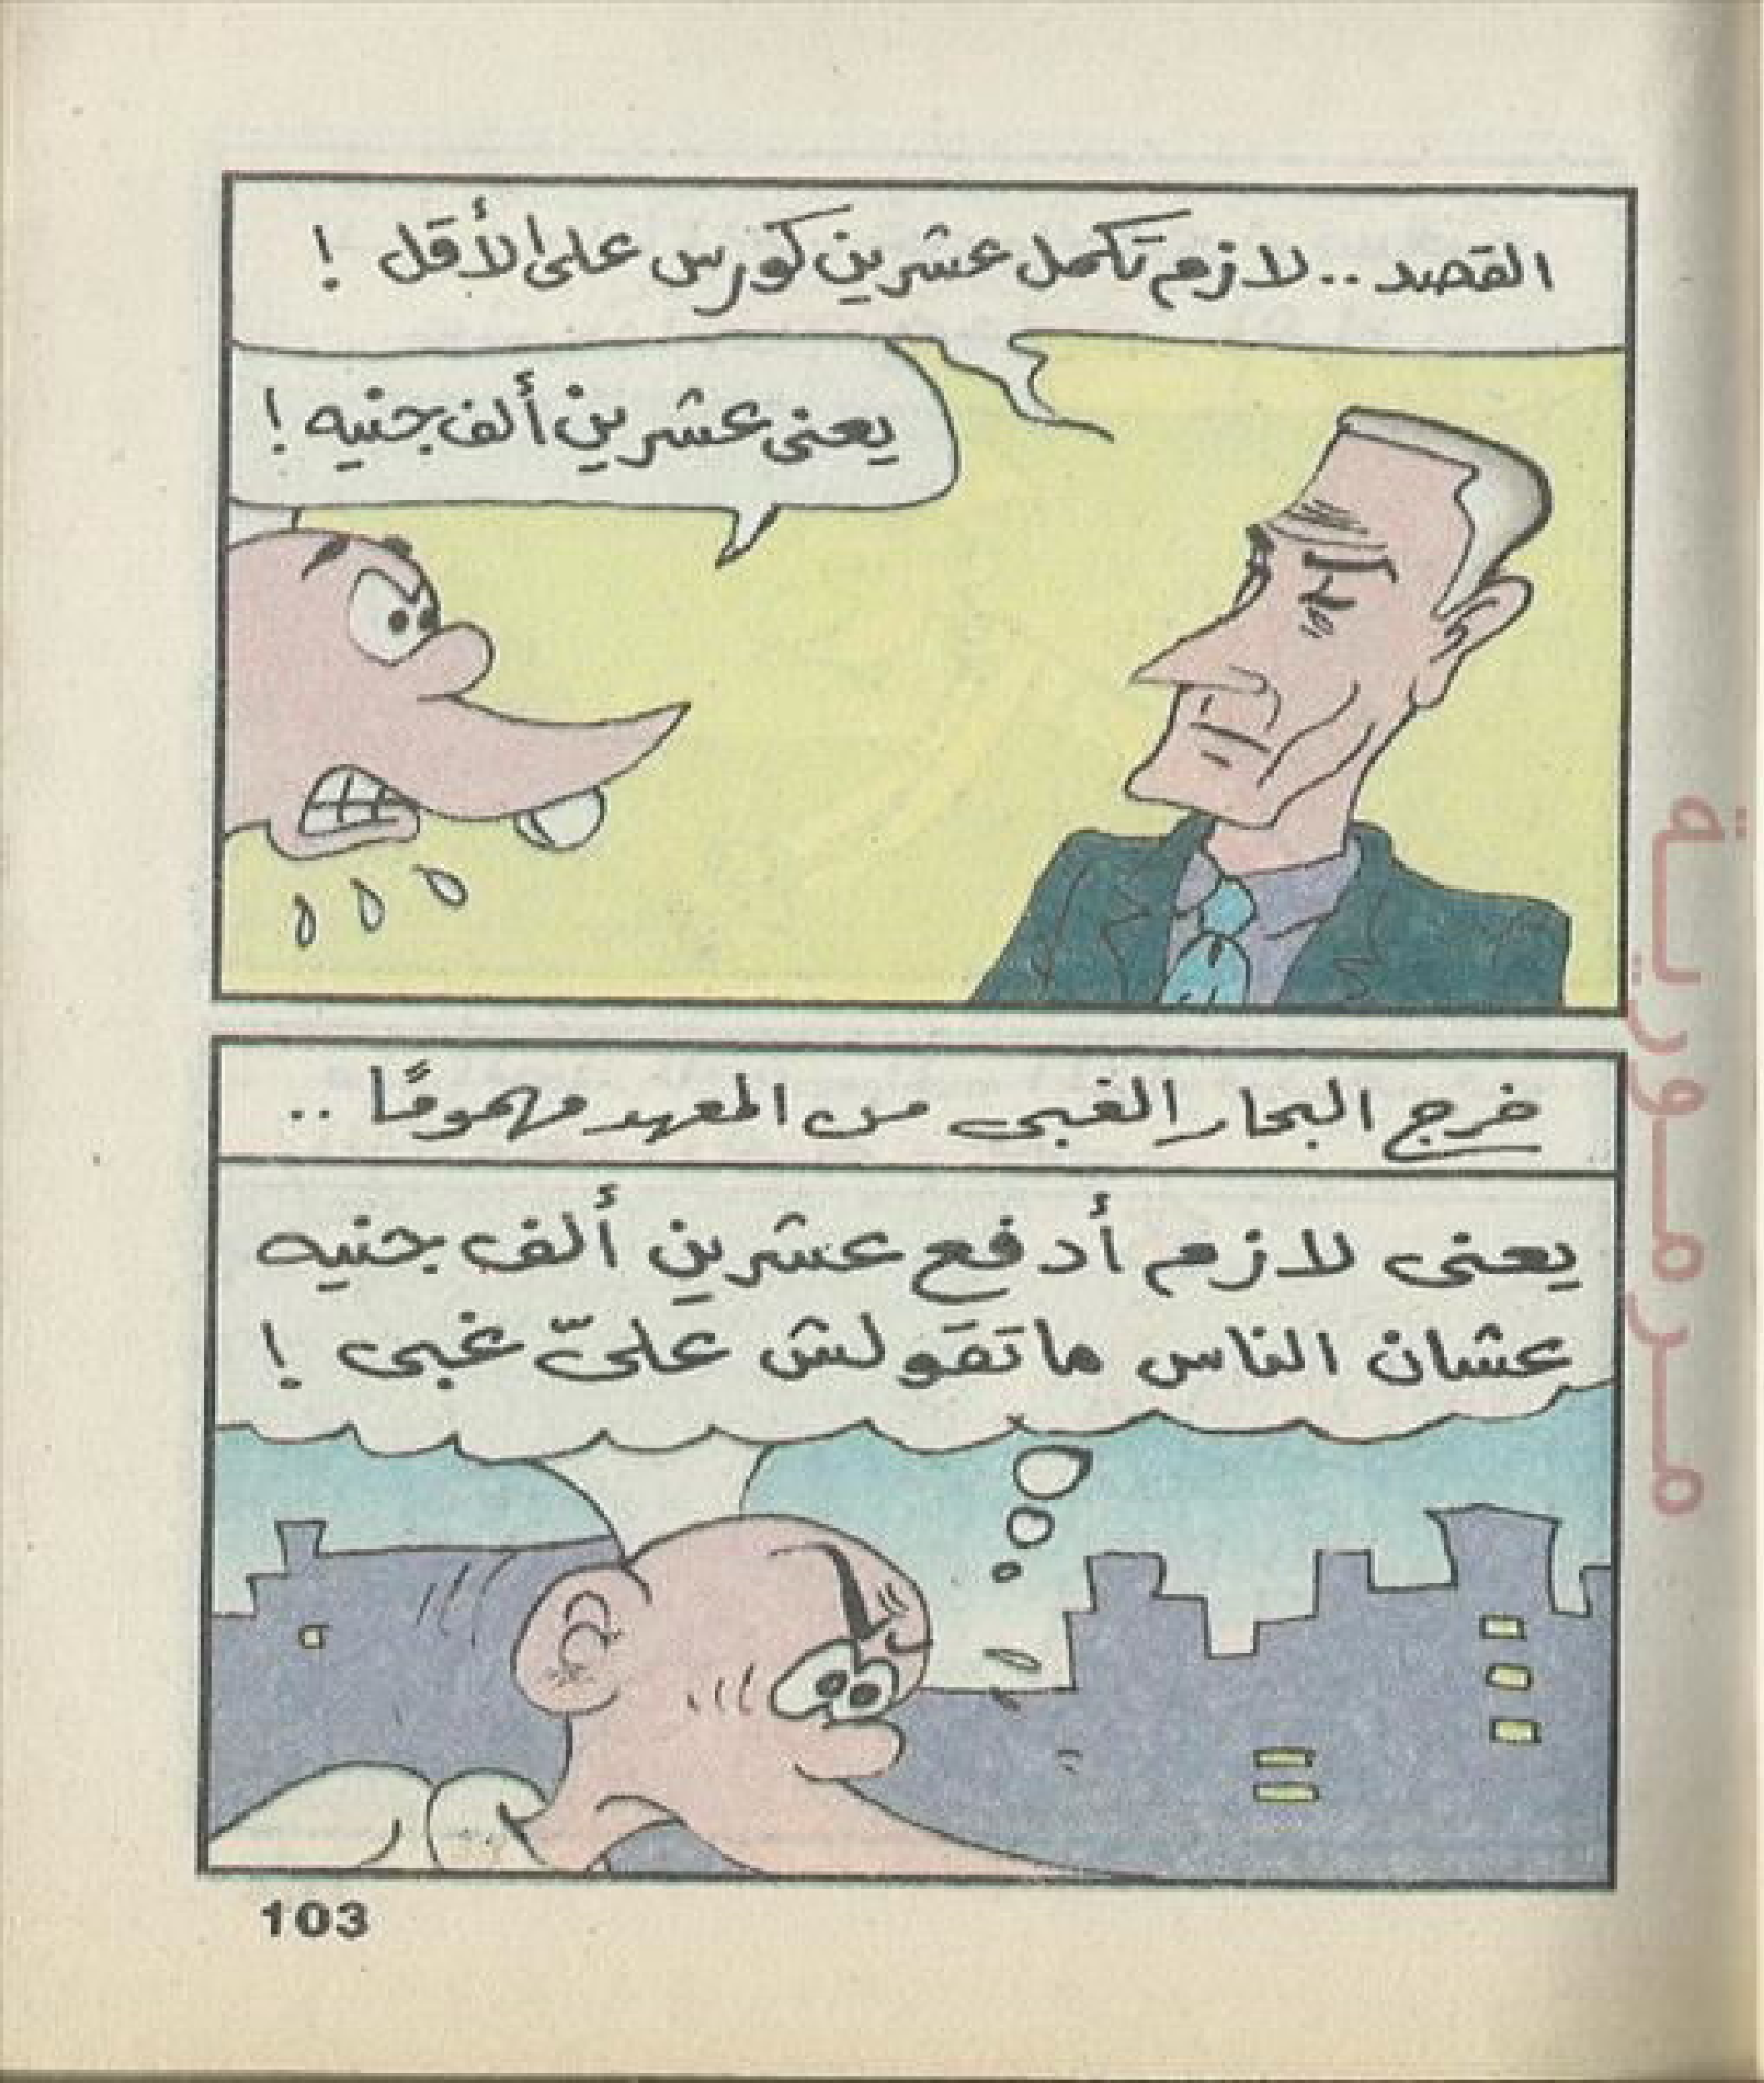 القصد .. لازم تكمل عشرين كورس على الأقل !
يعنى عشرين ألف جنيه !
خرج البحار الغبى من المعهد مهمومًا ..
يعنى لازم أدفع عشرين ألف جنيه
عشان الناس ما تقولش علىّ غبى !
103
مدرمورية